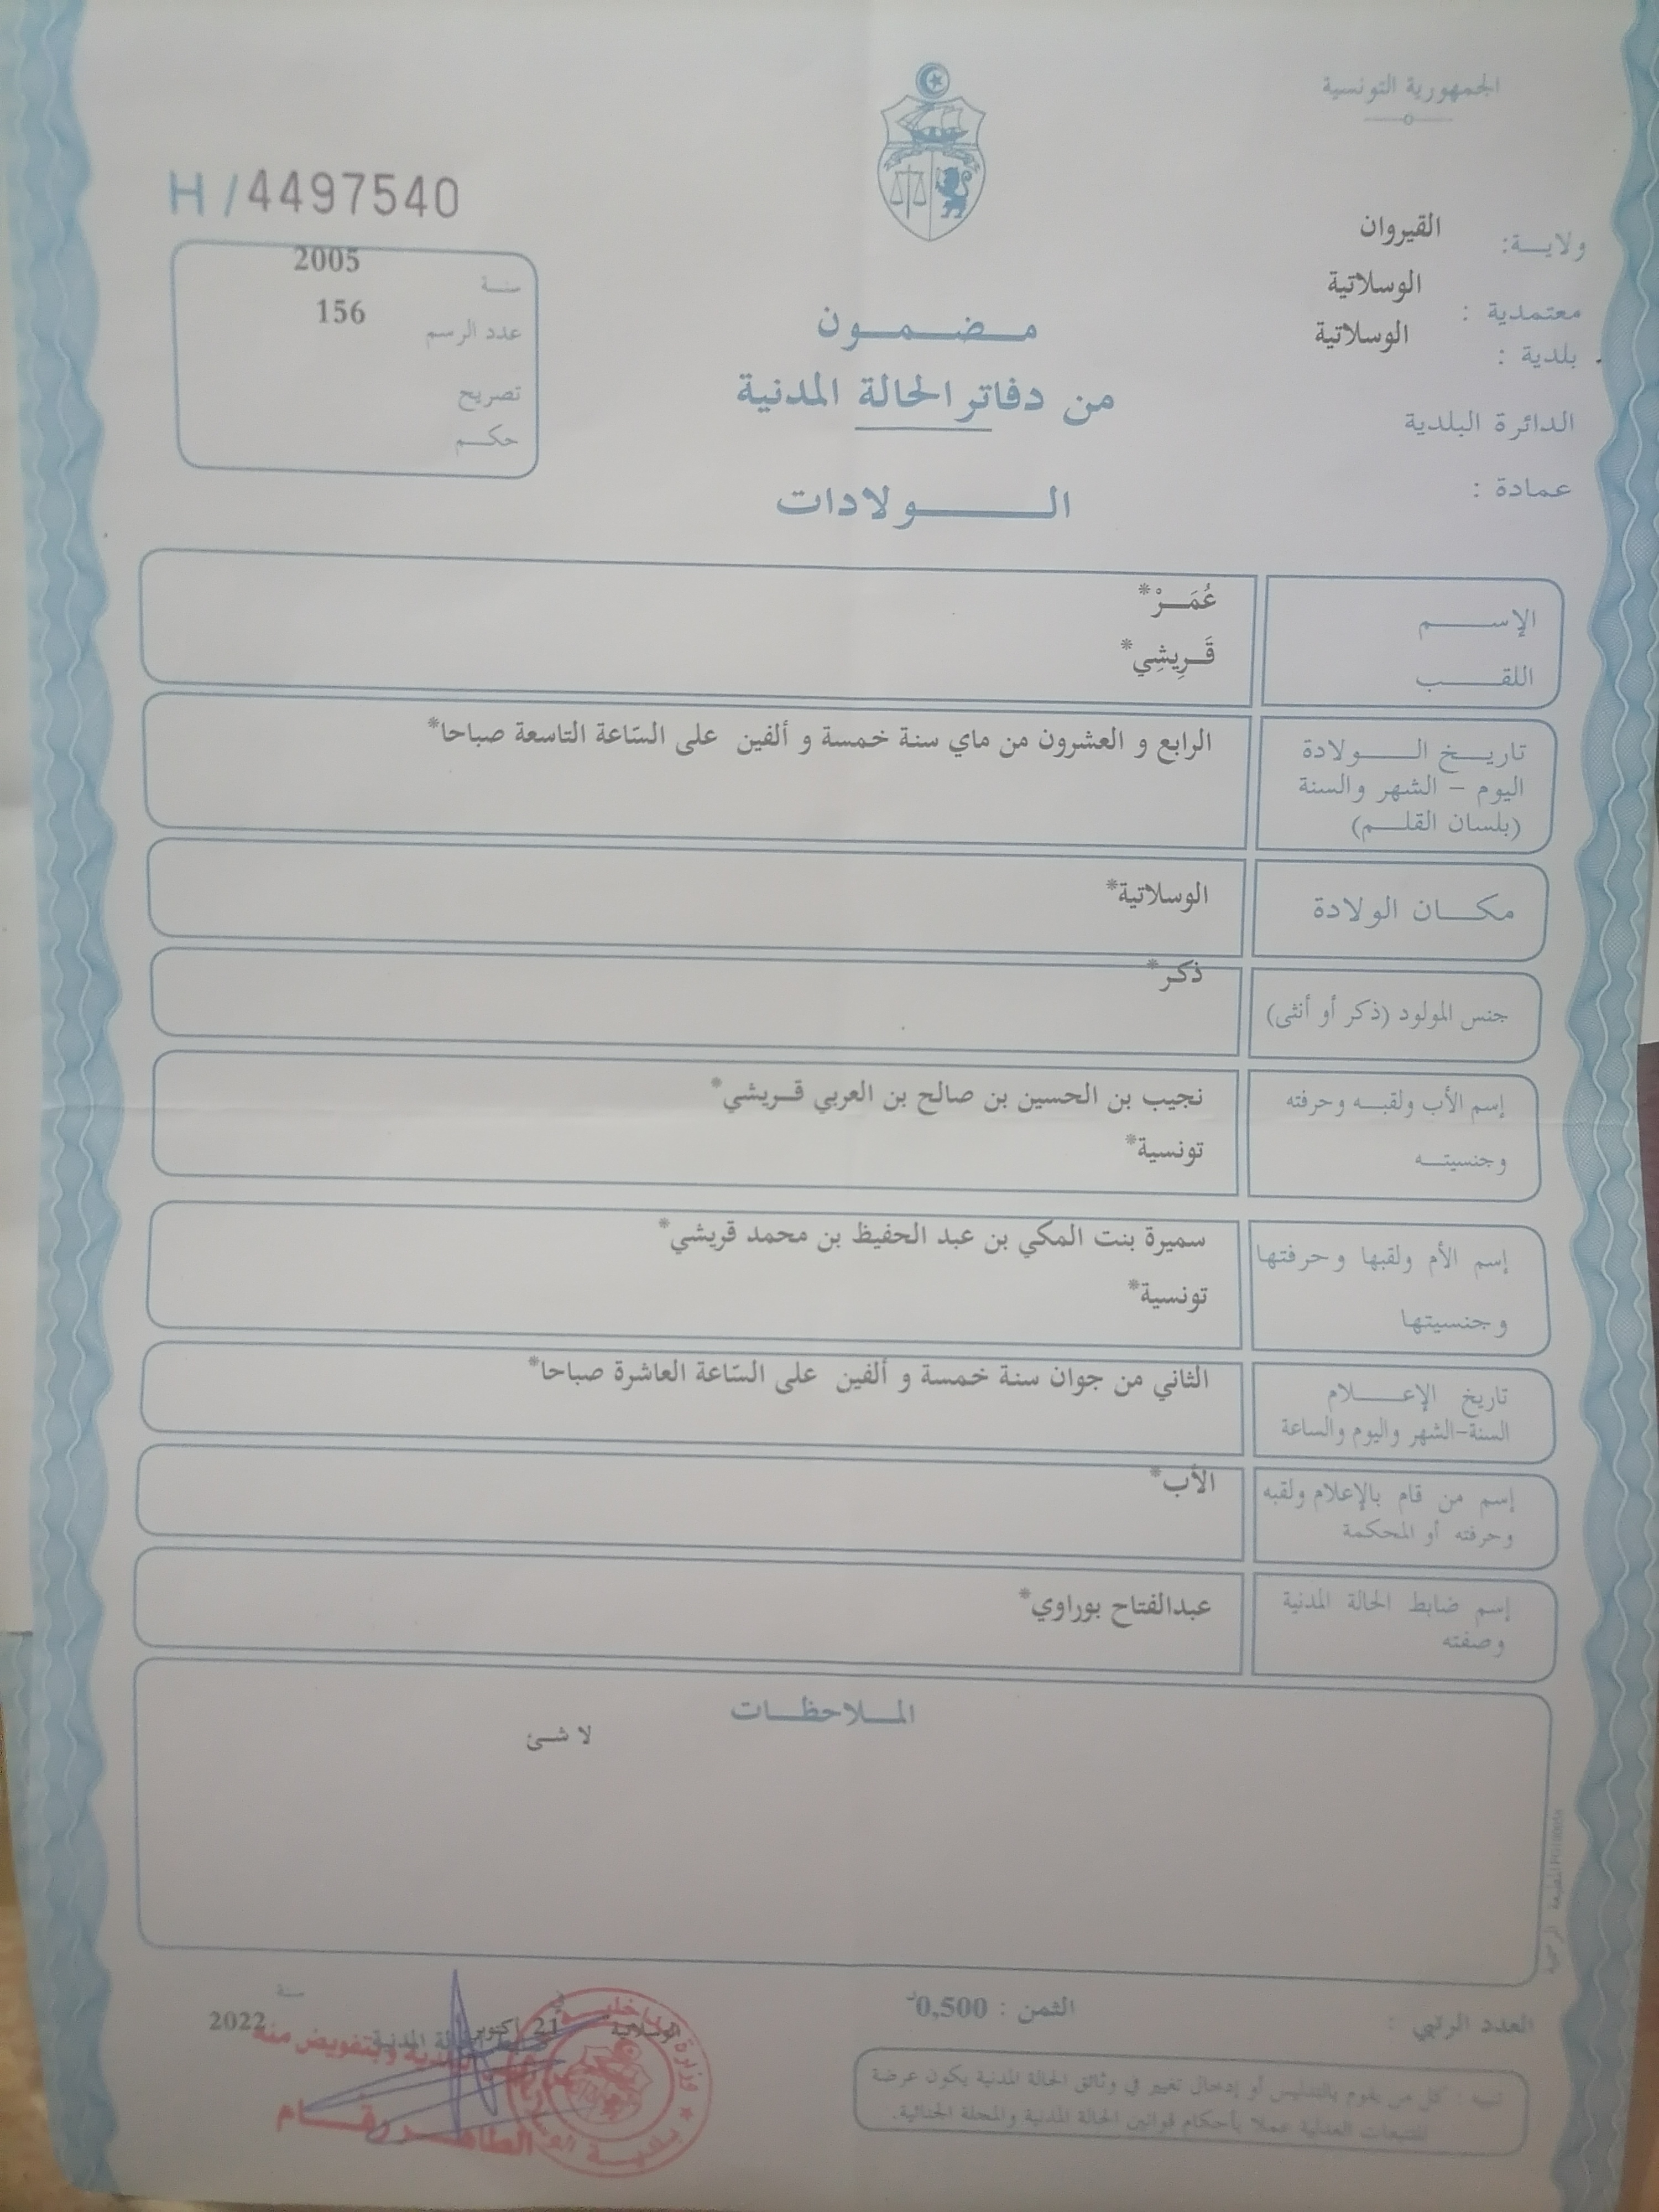 الجمهورية التونسية
ولايـــة: القيروان
معتمدية : الوسلاتية
بلدية : الوسلاتية
الدائرة البلدية
عمادة :
مـــضـــمـــون
من دفاتر الحالة المدنية
الـــــولادات
H / 4497540
سنــة 2005
عدد الرسم 156
تصريح
حكــم
الإســــم عُمَـــرْ*
اللقــــب قَـــرِيشِي*
تاريــخ الـــــولادة
اليوم – الشهر والسنة
(بلسان القلـــم)
الرابع و العشرون من ماي سنة خمسة و ألفين على السّاعة التاسعة صباحا*
مكـــان الولادة الوسلاتية*
جنس المولود (ذكر أو أنثى) ذكر*
إسم الأب ولقبــه وحرفته نجيب بن الحسين بن صالح بن العربي قــريشي*
وجنسيتــه تونسية*
إسم الأم ولقبها وحرفتها سميرة بنت المكي بن عبد الحفيظ بن محمد قريشي*
وجنسيتها تونسية*
تاريخ الإعــــلام
السنة-الشهر واليوم والساعة
الثاني من جوان سنة خمسة و ألفين على السّاعة العاشرة صباحا*
إسم من قام بالإعلام ولقبه
وحرفته أو المحكمة
الأب*
إسم ضابط الحالة المدنية
وصفته
عبدالفتاح بوراوي*
المــلاحظــات
لا شــئ
المطبعة الرسمية
العدد الرتبي :
الثمن : 0,500د
تنبيه : كل من يقوم بالتدليس أو إدخال تغيير في وثائق الحالة المدنية يكون عرضة
للتتبعات العدلية عملا بأحكام قوانين الحالة المدنية والمجلة الجنائية.
الوسلاتية في 21 أكتوبر سنة 2022
ضابط الحالة المدنية
وبتفويض منه
الطاهـــر رقـــام